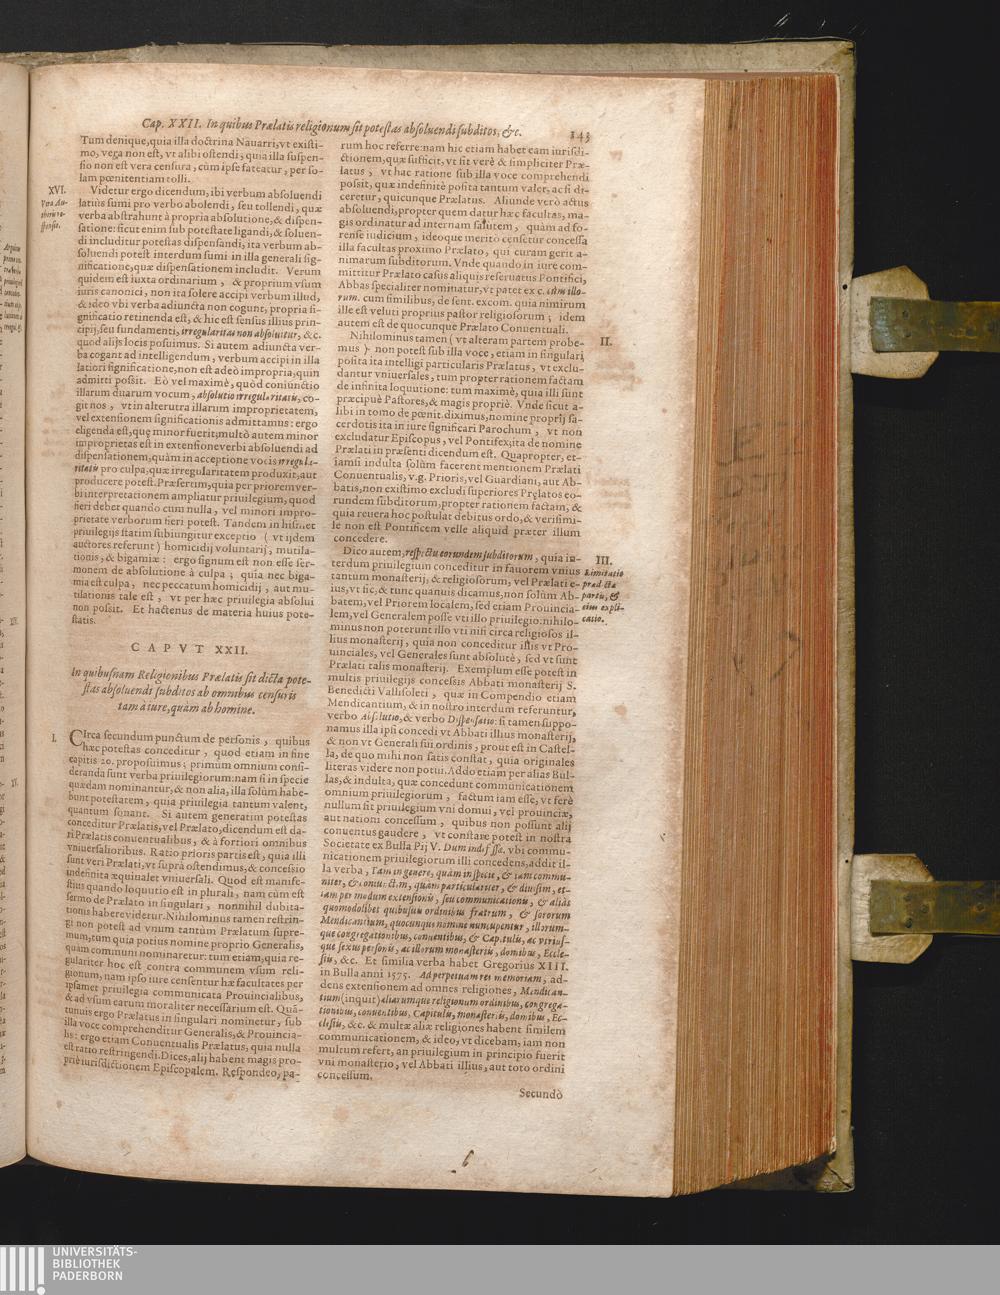 Cap. XXII. In quibus Prælatis religionum sit potestas absoluendi subditos, &c.
143
Tum denique, quia illa doctrina Nauarri, vt existi-
mo, vega non est, vt alibi ostendi; quia illa suspen-
sio non est vera censura, cùm ipse fateatur, per so-
lam pœnitentiam tolli.
XVI.
Vera Au-
Videtur ergo dicendum, ibi verbum absoluendi
latiùs sumi pro verbo abolendi, seu tollendi, quæ
verba abstrahunt à propria absolutione, & dispen-
satione: sicut enim sub potestate ligandi, & soluen-
di includitur potestas dispensandi, ita verbum ab-
soluendi potest interdum sumi in illa generali sig-
nificatione, quæ dispensationem includit. Verum
quidem est iuxta ordinarium, & proprium vsum
iuris canonici, non ita solere accipi verbum illud,
& ideo vbi verba adiuncta non cogunt, propria si-
gnificatio retinenda est, & hic est sensus illius prin-
cipij, seu fundamenti, irregularitas non absoluitur, &c.
quod alijs locis posuimus. Si autem adiuncta ver-
ba cogant ad intelligendum, verbum accipi in illa
latiori significatione, non est adeò impropria, quin
admitti possit. Eò vel maximè, quòd coniunctio
illarum duarum vocum, absolutio irregularitatis, co-
git nos, vt in alterutra illarum improprietatem,
vel extensionem significationis admittamus: ergo
eligenda est, quę minor fuerit; multò autem minor
improprietas est in extensione verbi absoluendi ad
dispensationem, quàm in acceptione vocis irregula-
ritatis pro culpa, quæ irregularitatem produxit, aut
producere potest. Præsertim, quia per priorem ver-
bi interpretationem ampliatur priuilegium, quod
fieri debet quando cum nulla, vel minori impro-
prietate verborum fieri potest. Tandem in hismet
priuilegijs statim subiungitur exceptio ( vt ijdem
auctores referunt ) homicidij voluntarij, mutila-
tionis, & bigamiæ: ergo signum est non esse ser-
monem de absolutione à culpa; quia nec biga-
mia est culpa, nec peccatum homicidij, aut mu-
tilationis tale est, vt per hæc priuilegia absolui
non possit. Et hactenus de materia huius pote-
statis.
CAPVT XXII.
In quibusnam Religionibus Prælatis sit dicta pote-
stas absoluendi subditos ab omnibus censuris
tam à iure, quàm ab homine.
I.
CIrca secundum punctum de personis, quibus
hæc potestas conceditur, quod etiam in fine
capitis 20. proposuimus; primùm omnium consi-
deranda sunt verba priuilegiorum: nam si in specie
quædam nominantur, & non alia, illa solùm habe-
bunt potestatem, quia priuilegia tantum valent,
quantum sonant. Si autem generatim potestas
conceditur Prælatis, vel Prælato, dicendum est da-
ri Prælatis conuentualibus, & à fortiori omnibus
vniuersalioribus. Ratio prioris partis est, quia illi
sunt veri Prælati, vt suprà ostendimus, & concessio
indefinita æquiualet vniuersali. Quod est manife-
stius quando loquutio est in plurali, nam cùm est
sermo de Prælato in singulari, nonnihil dubita-
tionis habere videtur. Nihilominus tamen restrin-
gi non potest ad vnum tantùm Prælatum supre-
mum, tum quia potius nomine proprio Generalis,
quàm communi nominaretur: tum etiam, quia re-
gulariter hoc est contra communem vsum reli-
gionum, nam ipso iure censentur hæ facultates per
ipsamet priuilegia communicata Prouincialibus,
& ad vsum earum moraliter necessarium est. Quā-
tumuis ergo Prælatus in singulari nominetur, sub
illa voce comprehenditur Generalis, & Prouincia-
lis: ergo etiam Conuentualis Prælatus, quia nulla
est ratio restringendi. Dices, alij habent magis pro-
priè iurisdictionem Episcopalem. Respondeo, pa-
rum hoc referre: nam hic etiam habet eam iurisdi-
ctionem, quæ sufficit, vt sit verè & simpliciter Præ-
latus, vt hac ratione sub illa voce comprehendi
possit, quæ indefinitè posita tantum valet, ac si di-
ceretur, quicunque Prælatus. Aliunde verò actus
absoluendi, propter quem datur hæc facultas, ma-
gis ordinatur ad internam salutem, quàm ad fo-
rense iudicium, ideoque meritò censetur concessa
illa facultas proximo Prælato, qui curam gerit a-
nimarum subditorum. Vnde quando in iure com-
mittitur Prælato casus aliquis reseruatus Pontifici,
Abbas specialiter nominatur, vt patet ex c. cùm illo-
rum. cum similibus, de sent. excom. quia nimirum
ille est veluti proprius pastor religiosorum; idem
autem est de quocunque Prælato Conuentuali.
II.
Nihilominus tamen ( vt alteram partem probe-
mus ) non potest sub illa voce, etiam in singulari
posita ita intelligi particularis Prælatus, vt exclu-
dantur vniuersales, tum propter rationem factam
de infinita loquutione: tum maximè, quia illi sunt
præcipuè Pastores, & magis propriè. Vnde sicut a-
libi in tomo de pœnit. diximus, nomine proprij sa-
cerdotis ita in iure significari Parochum, vt non
excludatur Episcopus, vel Pontifex, ita de nomine
Prælati in præsenti dicendum est. Quapropter, et-
iamsi indulta solùm facerent mentionem Prælati
Conuentualis, v.g. Prioris, vel Guardiani, aut Ab-
batis, non existimo excludi superiores Prælatos eo-
rundem subditorum, propter rationem factam, &
quia reuera hoc postulat debitus ordo, & verisimi-
le non est Pontificem velle aliquid præter illum
concedere.
III.
Limitatio
prædictæ
partis, &
eius expli-
catio.
Dico autem, respectu eorundem subditorum, quia in-
terdum priuilegium conceditur in fauorem vnius
tantum monasterij, & religiosorum, vel Prælati e-
ius, vt sic, & tunc quamuis dicamus, non solùm Ab-
batem, vel Priorem localem, sed etiam Prouincia-
lem, vel Generalem posse vti illo priuilegio: nihilo-
minus non poterunt illo vti nisi circa religiosos il-
lius monasterij, quia non conceditur illis vt Pro-
uinciales, vel Generales sunt absolutè, sed vt sunt
Prælati talis monasterij. Exemplum esse potest in
multis priuilegijs concessis Abbati monasterij S.
Benedicti Vallisoleti, quæ in Compendio etiam
Mendicantium, & in nostro interdum referuntur,
verbo Absolutio, & verbo Dispensatio: si tamen suppo-
namus illa ipsi concedi vt Abbati illius monasterij,
& non vt Generali sui ordinis, prout est in Castel-
la, de quo mihi non satis constat, quia originales
literas videre non potui. Addo etiam per alias Bul-
las, & indulta, quæ concedunt communicationem
omnium priuilegiorum, factum iam esse, vt ferè
nullum sit priuilegium vni domui, vel prouinciæ,
aut nationi concessum, quibus non possunt alij
conuentus gaudere, vt constare potest in nostra
Societate ex Bulla Pij V. Dum indefessæ. vbi commu-
nicationem priuilegiorum illi concedens, addit il-
la verba, Tam in genere, quàm in specie, & tam commu-
niter, & coniunctim, quàm particulariter, & diuisim, et-
iam per modum extensionis, seu communicationis, & aliàs
quomodolibet quibusuis ordinibus fratrum, & sororum
Mendicantium, quocunque nomine nuncupentur, illorum-
que congregationibus, conuentibus, & Capitulis, ac vtrius-
que sexus personis, ac illorum monasterijs, domibus, Eccle-
sijs, &c. Et similia verba habet Gregorius XIII.
in Bulla anni 1575. Ad perpetuam rei memoriam, ad-
dens extensionem ad omnes religiones, Mendican-
tium (inquit) aliarumque religionum ordinibus, congrega-
tionibus, conuentibus, Capitulis, monasterijs, domibus, Ec-
clesijs, &c. & multæ aliæ religiones habent similem
communicationem, & ideo, vt dicebam, iam non
multum refert, an priuilegium in principio fuerit
vni monasterio, vel Abbati illius, aut toto ordini
concessum.
Secundò
UNIVERSITÄTS-
BIBLIOTHEK
PADERBORN